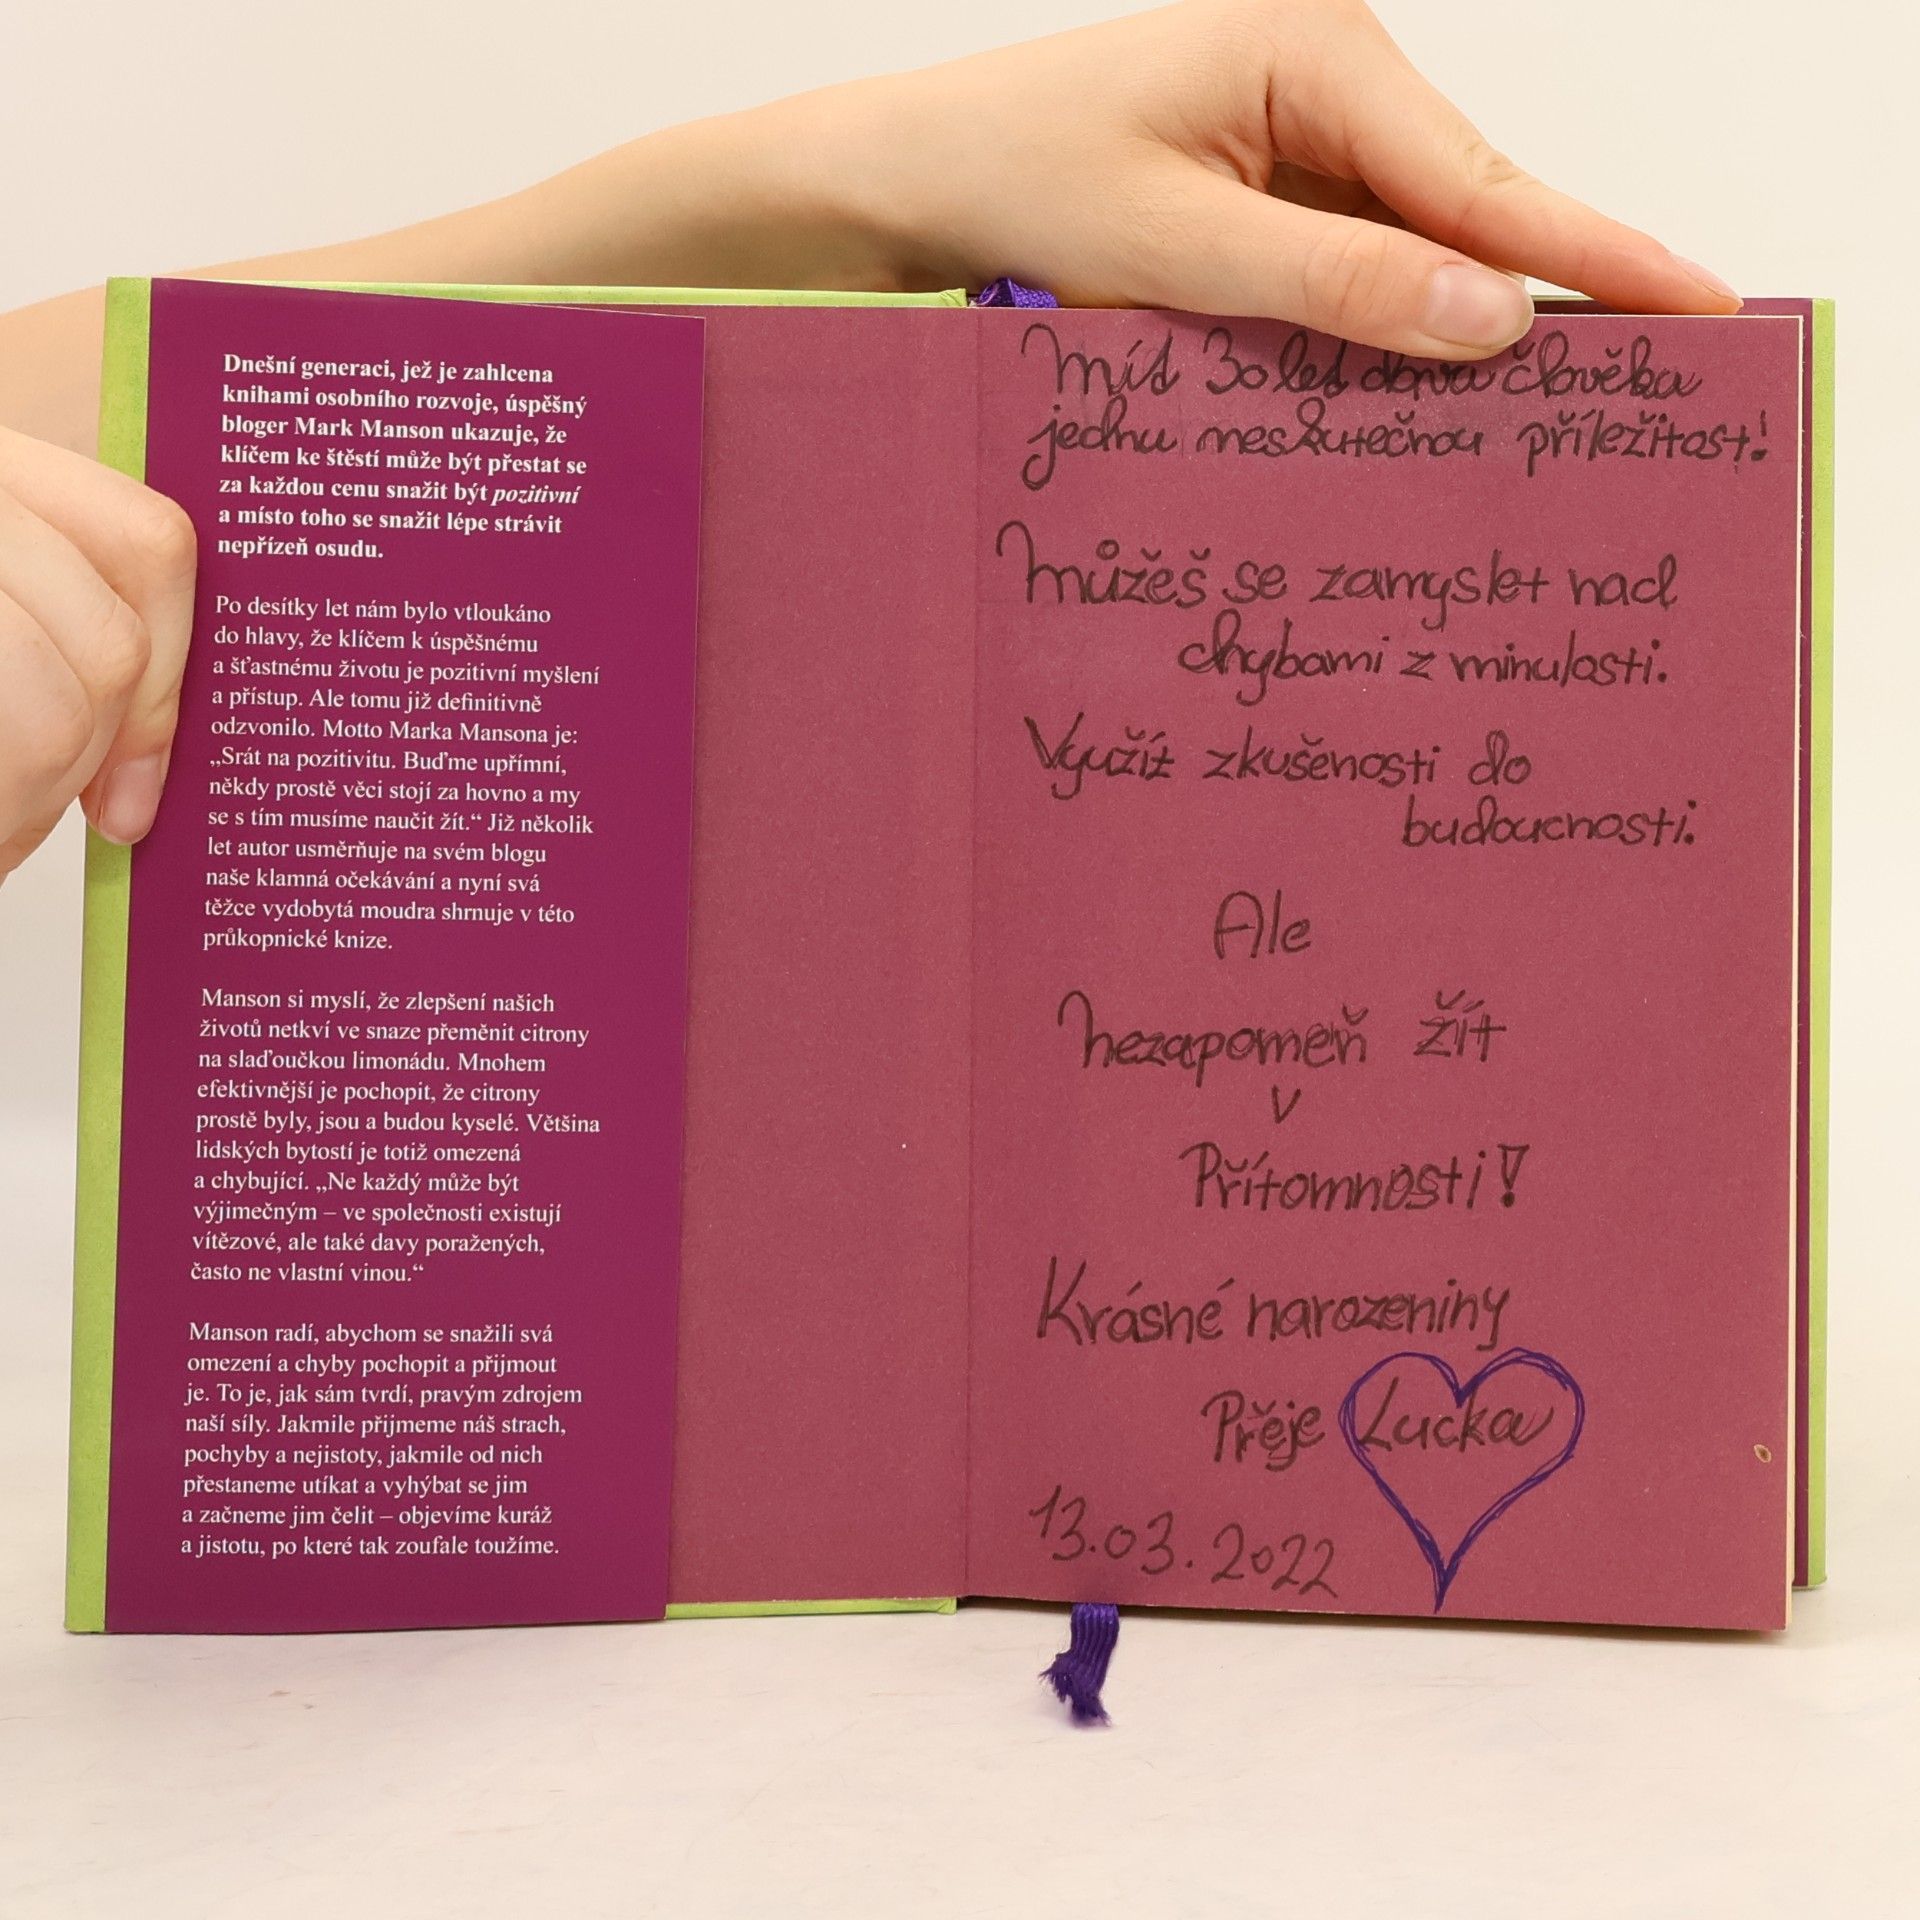 Dnešní generaci, jež je zahlcena
knihami osobního rozvoje, úspěšný
bloger Mark Manson ukazuje, že
klíčem ke štěstí může být přestat se
za každou cenu snažit být pozitivní
a místo toho se snažit lépe strávit
nepřízeň osudu.
Po desítky let nám bylo vtloukáno
do hlavy, že klíčem k úspěšnému
a šťastnému životu je pozitivní myšlení
a přístup. Ale tomu již definitivně
odzvonilo. Motto Marka Mansona je:
„Srát na pozitivitu. Buďme upřímní,
někdy prostě věci stojí za hovno a my
se s tím musíme naučit žít.“ Již několik
let autor usměrňuje na svém blogu
naše klamná očekávání a nyní svá
těžce vydobytá moudra shrnuje v této
průkopnické knize.
Manson si myslí, že zlepšení našich
životů netkví ve snaze přeměnit citrony
na slaďoučkou limonádu. Mnohem
efektivnější je pochopit, že citrony
prostě byly, jsou a budou kyselé. Většina
lidských bytostí je totiž omezená
a chybující. „Ne každý může být
výjimečným – ve společnosti existují
vítězové, ale také davy poražených,
často ne vlastní vinou.“
Manson radí, abychom se snažili svá
omezení a chyby pochopit a přijmout
je. To je, jak sám tvrdí, pravým zdrojem
naší síly. Jakmile přijmeme náš strach,
pochyby a nejistoty, jakmile od nich
přestaneme utíkat a vyhýbat se jim
a začneme jim čelit – objevíme kuráž
a jistotu, po které tak zoufale toužíme.
Mít 30 let dává člověku
jednu neskutečnou příležitost!
Můžeš se zamyslet nad
chybami z minulosti.
Využít zkušenosti do
budoucnosti.
Ale
nezapomeň žít
v
Přítomnosti!
Krásné narozeniny
Přeje Lucka
13.03.2022